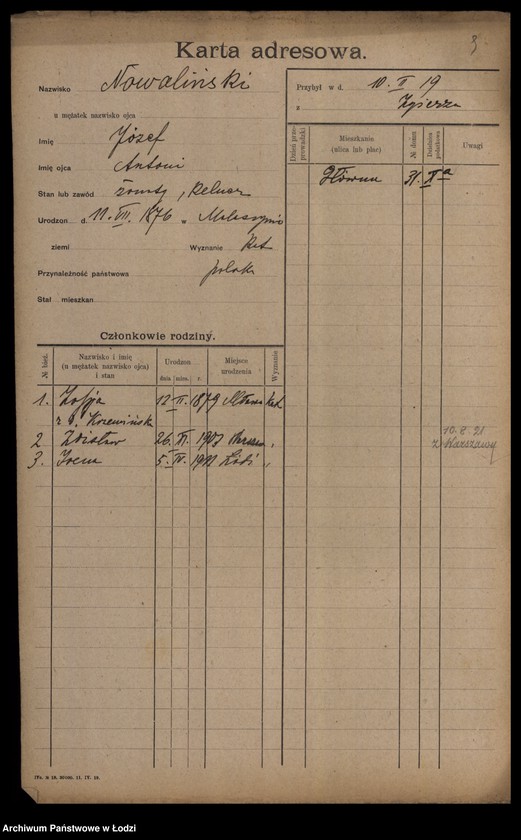 Karta adresowa.
3
Nazwisko Nowaliński
u mężatek nazwisko ojca
Imię Józef
Imię ojca Antoni
Stan lub zawód żonaty, kelner
Urodzon d. 11. VII. 1876 w
ziemi Wyznanie kat
Przynależność państwowa polsk
Stał mieszkan.
Przybył w d. 10. II 19
z Zgierza
Dzień prze-prowadzki
Mieszkanie (ulica lub plac)
№ domu
Dzielnica podatkowa
Uwagi
Główna 31. II a
Członkowie rodziny.
№ bież.
Nazwisko i imię (u mężatek nazwisko ojca) i stan
Urodzon
dnia mies. r.
Miejsce urodzenia
Wyznanie
1. Zofja 12 II. 1879 Mława kat
z d. Krzewińska
2 Zdzisław 26. XI. 1903 Warszawa "
3. Irena 5. IV. 1911 Łódź "
10. 8. 21
z Warszawy
Archiwum Państwowe w Łodzi